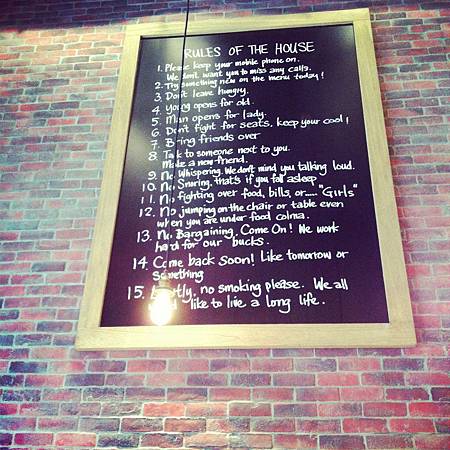 RULES OF THE HOUSE
1. Please keep your mobile phone on.
We don't want you to miss any calls.
2. Try something new on the menu today!
3. Don't leave hungry.
4. Young opens for old.
5. Man opens for lady.
6. Don't fight for seats, keep your cool!
7. Bring friends over
8. Talk to someone next to you.
Make a new friend.
9. No Whispering. We don't mind you talking loud.
10. No Snoring, that's if you fall asleep.
11. No fighting over food, bills, or.... "Girls"
12. No jumping on the chair or table even
when you are under food coma.
13. No Bargaining. Come On! We work
hard for our bucks.
14. Come back soon! Like tomorrow or
Something
15. Lastly, no smoking please. We all
like to live a long life.